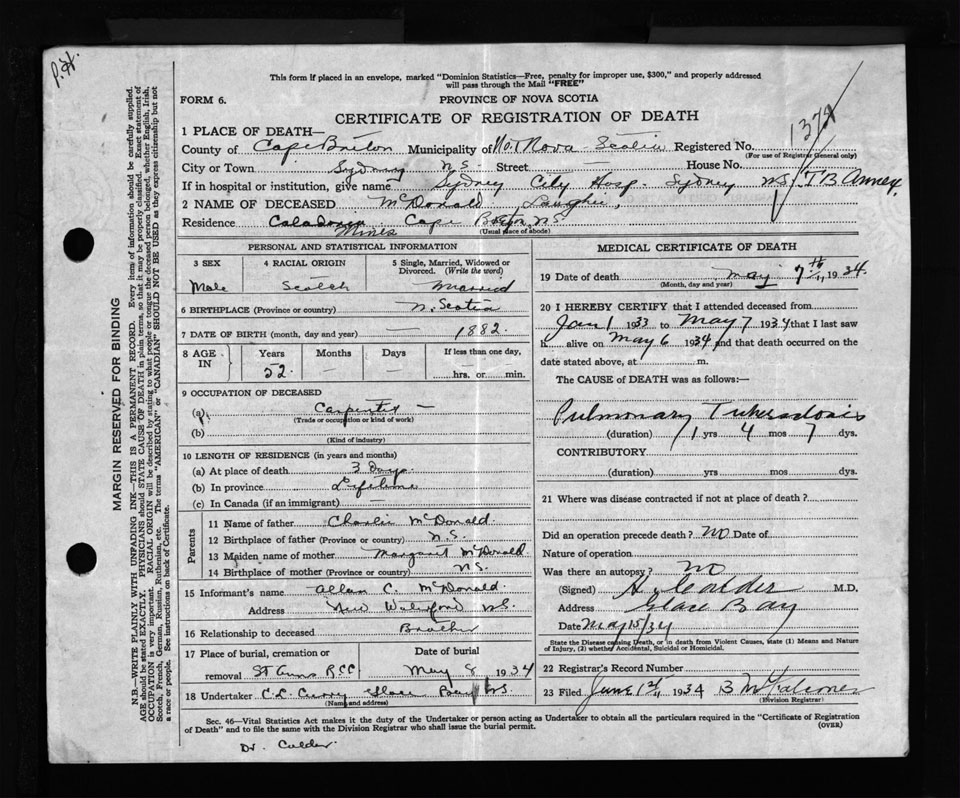 P.H.
This form if placed in an envelope, marked "Dominion Statistics—Free, penalty for improper use, $300," and properly addressed
will pass through the Mail "FREE"
FORM 6.
PROVINCE OF NOVA SCOTIA
CERTIFICATE OF REGISTRATION OF DEATH
1 PLACE OF DEATH—
County of Cape Breton Municipality of No. 1 Nova Scotia Registered No. 1372
(For use of Registrar General only)
City or Town Sydney N.S. Street — House No.
If in hospital or institution, give name Sydney City Hosp. Sydney NS / T B Annex.
2 NAME OF DECEASED McDonald Laughie,
Residence Caladonia Mines Cape Breton, N.S.
(Usual place of abode)
PERSONAL AND STATISTICAL INFORMATION
3 SEX 4 RACIAL ORIGIN 5 Single, Married, Widowed or
Divorced. (Write the word)
Male Scotch Married
6 BIRTHPLACE (Province or country) N. Scotia
7 DATE OF BIRTH (month, day and year) — 1882.
8 AGE IN Years Months Days If less than one day,
52. — — hrs. or min.
9 OCCUPATION OF DECEASED
(a) Carpenter —
(Trade or occupation or kind of work)
(b)
(Kind of industry)
10 LENGTH OF RESIDENCE (in years and months)
(a) At place of death 3 Days.
(b) In province Lifetime
(c) In Canada (if an immigrant) —
Parents
11 Name of father Charlie McDonald.
12 Birthplace of father (Province or country) N.S.
13 Maiden name of mother Margaret McDonald
14 Birthplace of mother (Province or country) N.S.
15 Informant's name Allan C. McDonald.
Address New Waterford NS.
16 Relationship to deceased Brother
17 Place of burial, cremation or Date of burial
removal St Anns R.C.C May 8 1934
18 Undertaker C.C. Curry Glace Bay NS
(Name and address)
MEDICAL CERTIFICATE OF DEATH
19 Date of death May 7th 1934.
(Month, day and year)
20 I HEREBY CERTIFY that I attended deceased from
Jan 1 1933 to May 7 1934 that I last saw
h alive on May 6 1934 and that death occurred on the
date stated above, at m.
The CAUSE of DEATH was as follows:—
Pulmonary Tuberculosis
(duration) 1 yrs 4 mos 7 dys.
CONTRIBUTORY
(duration) yrs mos dys.
21 Where was disease contracted if not at place of death?
Did an operation precede death? No Date of
Nature of operation
Was there an autopsy? No
(Signed) Calder M.D.
Address Glace Bay
Date May 15/34
State the Disease causing Death, or in death from Violent Causes, state (1) Means and Nature
of Injury, (2) whether Accidental, Suicidal or Homicidal.
22 Registrars Record Number
23 Filed June 1934
(Division Registrar)
Sec. 46—Vital Statistics Act makes it the duty of the Undertaker or person acting as Undertaker to obtain all the particulars required in the "Certificate of Registration
of Death" and to file the same with the Division Registrar who shall issue the burial permit.
(OVER)
Dr. Calder.
MARGIN RESERVED FOR BINDING
N.B.—WRITE PLAINLY WITH UNFADING INK—THIS IS A PERMANENT RECORD. Every item of information should be carefully supplied.
AGE should be stated EXACTLY. PHYSICIANS should STATE CAUSE OF DEATH in plain terms, so that it may be properly classified. Exact statement of
OCCUPATION is very important. RACIAL ORIGIN will be described by stating to what people or tongue the deceased person belonged, whether English, Irish,
Scotch, French, German, Russian, Ruthenian, etc. The terms "AMERICAN" or "CANADIAN" SHOULD NOT BE USED as they express citizenship but not
a race or people. See instructions on back of Certificate.